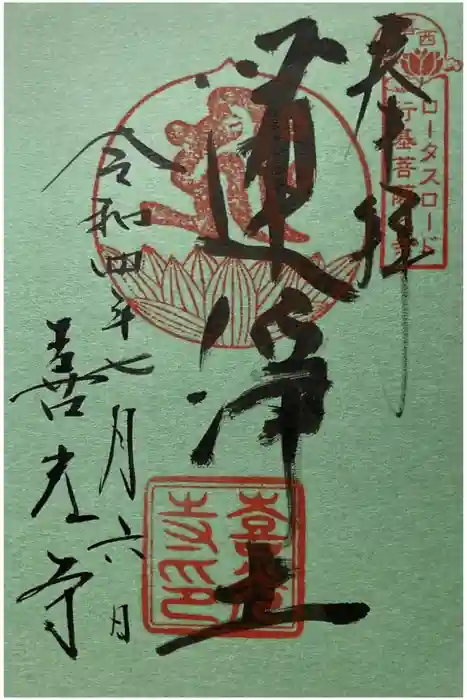 奉拝
西
ロータスロード
行基菩薩
蓮浄土
令和四年七月六日
善光寺